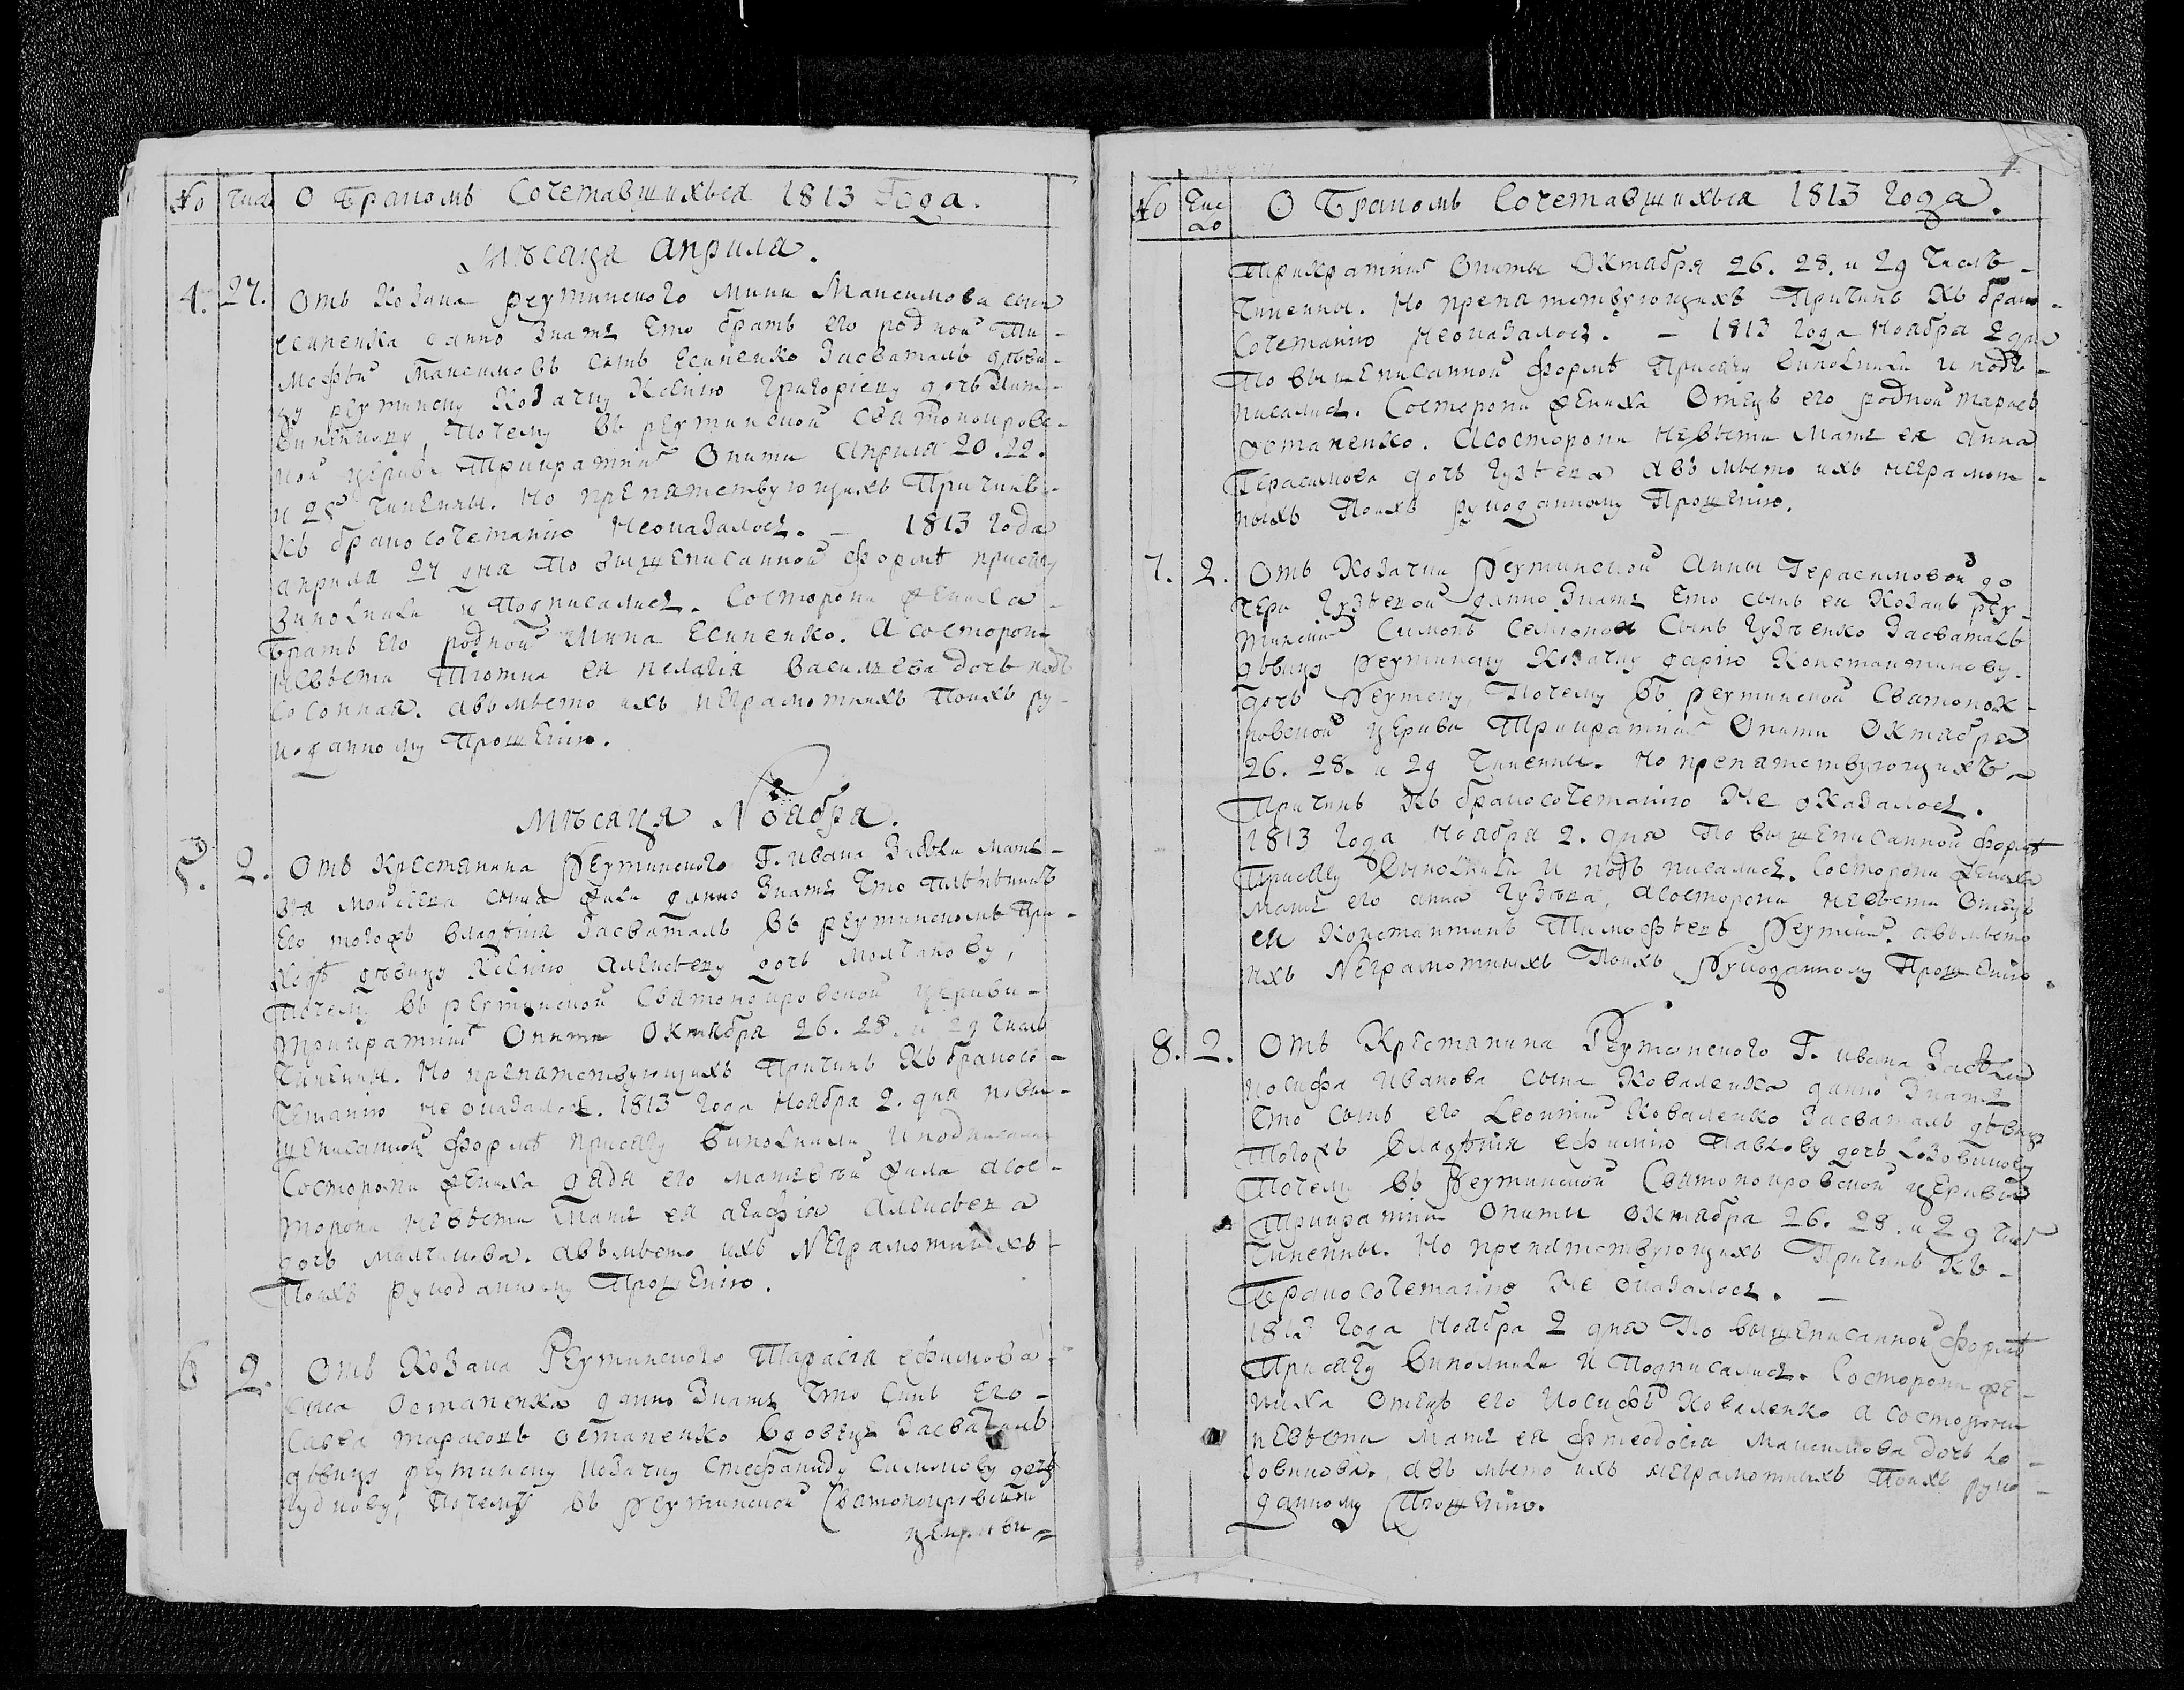 № Числ О Бракомъ Сочетавшихъся 1813 Года.
Мѣсаца Априла.
4. 27. Отъ Козака реутинского Мини Максимова сына
Есипенка данно Знать Что братъ его родной Ти-
мофѣй Максимовъ сынъ Есипенко Засваталъ дѣви-
цу реутинску Козачку Ксенію Григоріеву дочь
Почему Въ реутинской Святопокровс-
кой церкви Трикратніи Опити Априля 20. 22.
и 25 Чинении. Но препятствующихъ Причинъ-
Къ бракосочетанію Неоказалось. — 1813 Года
Априла 27 дна По вышеписанной Формѣ присягу
Виполнили и Подписались. Состорони Жениха
Братъ Его родной Мина Есипенко. А состорони
Невѣсти Тіотка ея пелагія Василиева дочь под
Сосонная. авъмѣсто ихъ Неграмотнихъ Поихъ ру-
коданному Прошенію.
Мѣсаца Ноабра.
5. 2. Отъ Крестянина Реутинского Г. ивана Забѣли Матв-
ѣя Мойсеева сына данно Знать Что Племѣнникъ
Его тогожъ Владѣнія Засваталъ Въ реутинскомъ При-
ходѣ дѣвицу Ксенію Алексѣеву дочь Молчанову,
Почему Въ реутинской Святопокровской церкви-
Трикратніи Опити Октября 26. 28. и 29 Числъ
Чинении. Но препятствующихъ Причинъ Къ бракосо-
четанію Неоказалось. 1813 Года Ноября 2. дня повы-
шеписанной Формѣ присягу Виполнили и подписались
Состорони Жениха дядя его Матвѣй а сос-
торони Невѣсти Мать ея агафіа Алексѣева
дочь Малчанова. авъмѣсто ихъ Неграмотнихъ-
Поихъ рукоданному Прошенію.
6 2. Отъ Козака Реутинского Тарасія ефимова-
Сина Остапенка данно Знать Что Синъ Его-
Савва Тарасовъ остапенко Вдовецъ Засваталъ
дѣвицу реутинску Козачку Стефаниду Симонову дочь
Почему Въ реутинской Святопокровской
церкви=
№ Чис
ло О Бракомъ Сочетавшихъся 1813 Года.
Трикратніи Опиты Октября 26. 28. и 29 Числъ-
Чинены. Но препятствующихъ Причинъ Къ брако-
Сочетанію Неоказалось. — 1813 Года Ноября 2 дня
По вышеписанной Формѣ Присягу Виполнили и подъ-
писались. Состорони Жениха Отецъ его родной тарасъ
остапенко. Асосторони Невѣсти Мать ея анна
Герасимова дочь авъмѣсто ихъ Неграмот-
ныхъ Поихъ рукоданному Прошенію.
7. 2. Отъ Козачки Реутинской Анны Герасимовой до
чери данно Знать Что сынъ ея Козакъ реу-
тинскій Симонъ Семионовъ Сынъ Засваталъ
дѣвицу реутинску Козачку дарію Константинову-
дочь Реутску, Почему Въ реутинской Святопок-
ровской церкви Трикратніи Опити Октабря
26. 28. и 29 Чинены. Но препятствующихъ-
Причинъ Къ бракосочетанію Не оказалось.
1813 Года Ноября 2. дня По вышеписанной Формѣ
Присягу Выполнили и подъ писались. Состорони Жениха
Мать его анна асосторони невѣсти Отецъ
ея Константинъ Тимофѣевъ Реутскій. авъмѣсто
ихъ Неграмотныхъ Поихъ Рукоданному Прошенію.
8. 2. Отъ Крестянина Реутинского Г. ивана Забѣли
иосифа Иванова сына Коваленка данно Знать
Что Сынъ его Леонтій Коваленко Засваталъ дѣвицу
Тогожъ Владѣнія ефимію Павлову дочь
Почему Въ Реутинской Святопокровской церкви
Трикратніи Опити октября 26. 28. и 29 Чис
Чинении. Но препятствующихъ Причинъ Къ-
Бракосочетанію Не оказалось. —
1813 Года Ноября 2 дня По вышеписанной Формѣ
Присягу Виполнили и Подписались. Состорони Же-
ниха Отецъ его Иосифъ Коваленко а состорони
невѣсти Мать ея Феодосіа Максимова дочь Ло-
, авъ мѣсто ихъ неграмотныхъ Поихъ руко-
данному Прошенію.